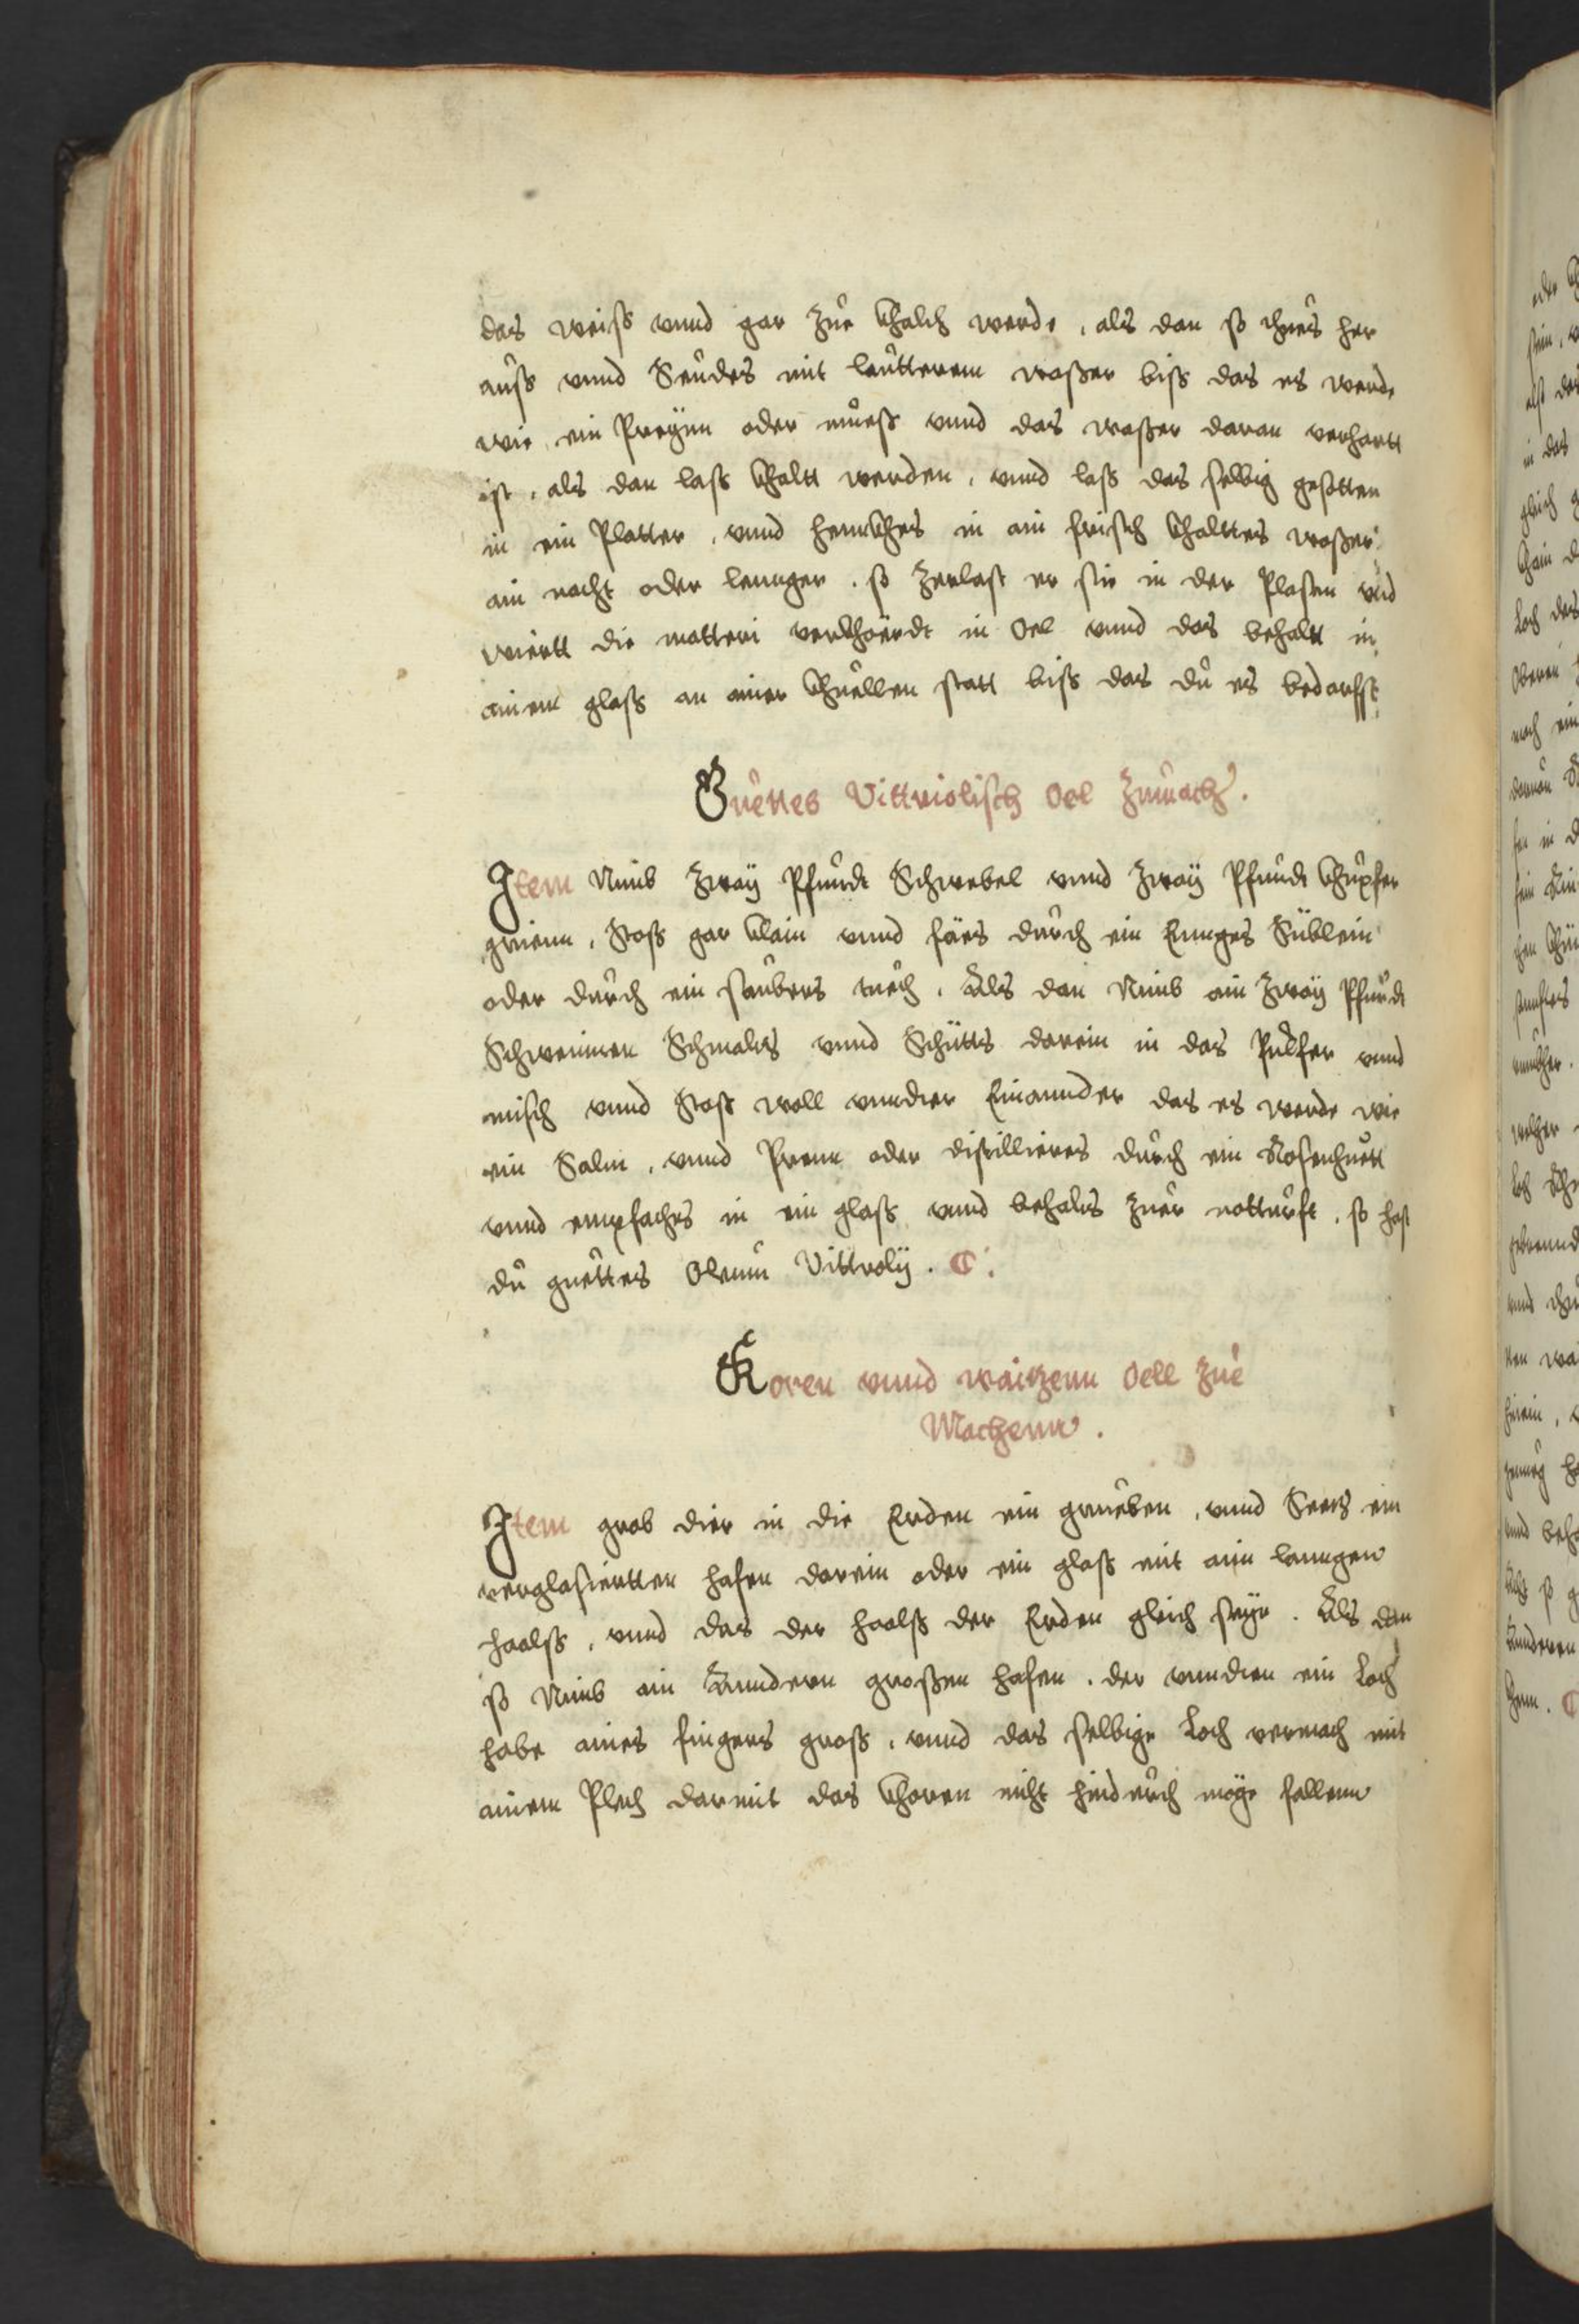 das weiss vnnd gar zue khalch werde, als dan so thues her
auss vnnd Seudes mit lautterem wasser biss das es werde
wie ein Preÿnn oder muess vnnd das wasser daran verhartt
ist, als dan lass khaltt werden, vnnd lass das selbig gesotten
in ein Platter, vnnd hennkhes in ain frisch khalttes wasser
ain nacht oder lennger. so zerlast er sie in der Plasen vnd
wiertt die matteri verkhoerdt in Oel vnnd das behaltt in
ainem glass an ainer khuellen statt biss das du es bedarffst
Guettes Vittriolisch Oel zumach.
Item Nimb zwaÿ Pfundt Schwebel vnnd zwaÿ Pfundt khupfer
grienn, Stoss gar klain vnnd fäes durch ein Ennges Süblein
oder durch ein saubers tuech, Als dan Nimb ain zwaÿ Pfundt
Schweinen Schmaltz vnnd Schütts darein in das Pulfer vnnd
misch vnnd Stoss woll vnndter Einannder das es werde wie
ein Salm, vnnd Prenn oder distillieres durch ein Rosenhuett
vnnd empfaches in ein glass vnnd behalts zuer notturft, so hast
du guettes Oleum Vittrolÿ.
Koren vnnd waitzenn Oell zue
Machenn.
Item grab dier in die Erden ein grueben, vnnd Seetz ein
verglasiertten hafen darein oder ein glass mit aim lanngen
haalss, vnnd das der haalss der Erden gleich seÿe. Als dan
so Nimb ain Anndern grossen hafen, der vnndten ein Loch
habe aines fingers gross, vnnd das selbige Loch vermach mit
ainem Plech darmit das khoren nicht hindurch möge fallenn